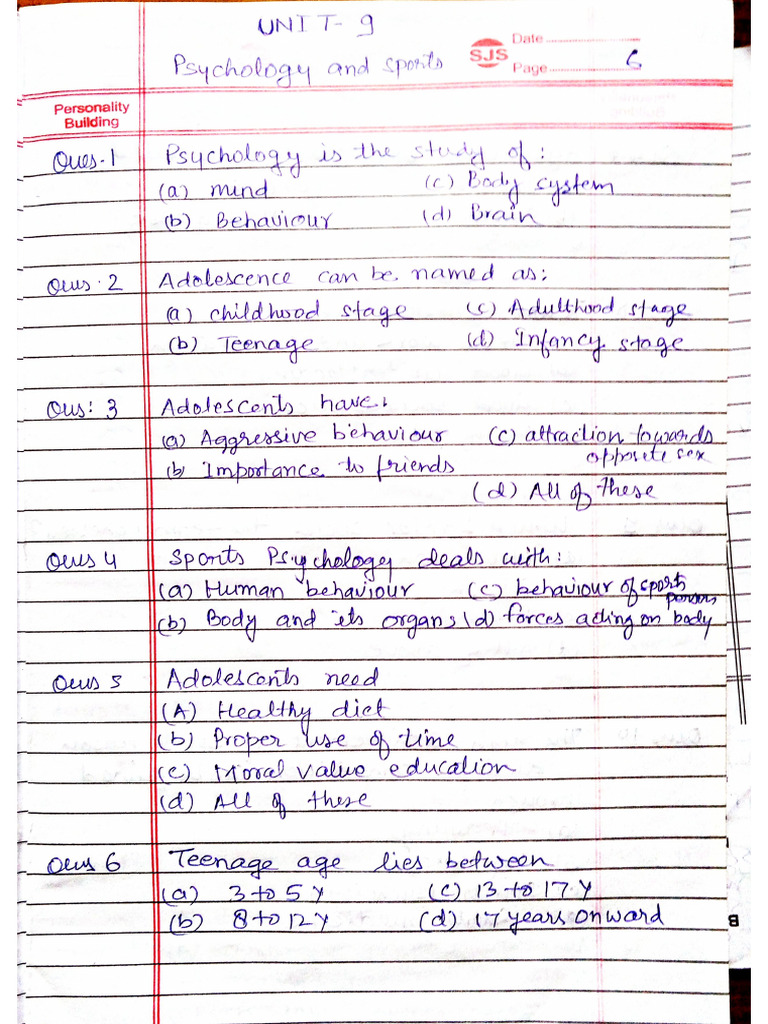 UNIT- 9
Psychology and sports
SJS
Date
Page 6
Personality
Building
Ques.1 Psychology is the study of :
(a) mind (c) Body system
(b) Behaviour (d) Brain
Ques. 2 Adolescence can be named as:
(a) childhood stage (c) Adulthood stage
(b) Teenage (d) Infancy stage
Ques: 3 Adolescents have:
(a) Aggressive behaviour (c) attraction towards
opposite sex
(b) Importance to friends
(d) All of These
Ques 4 Sports Psychology deals with:
(a) Human behaviour (c) behaviour of sports
persons
(b) Body and its organs (d) forces acting on body
Ques 5 Adolescents need
(A) Healthy diet
(b) Proper use of time
(c) Moral value education
(d) All of these
Ques 6 Teenage age lies between
(a) 3 to 5 Y (c) 13 to 17 Y
(b) 8 to 12 Y (d) 17 years onward
B